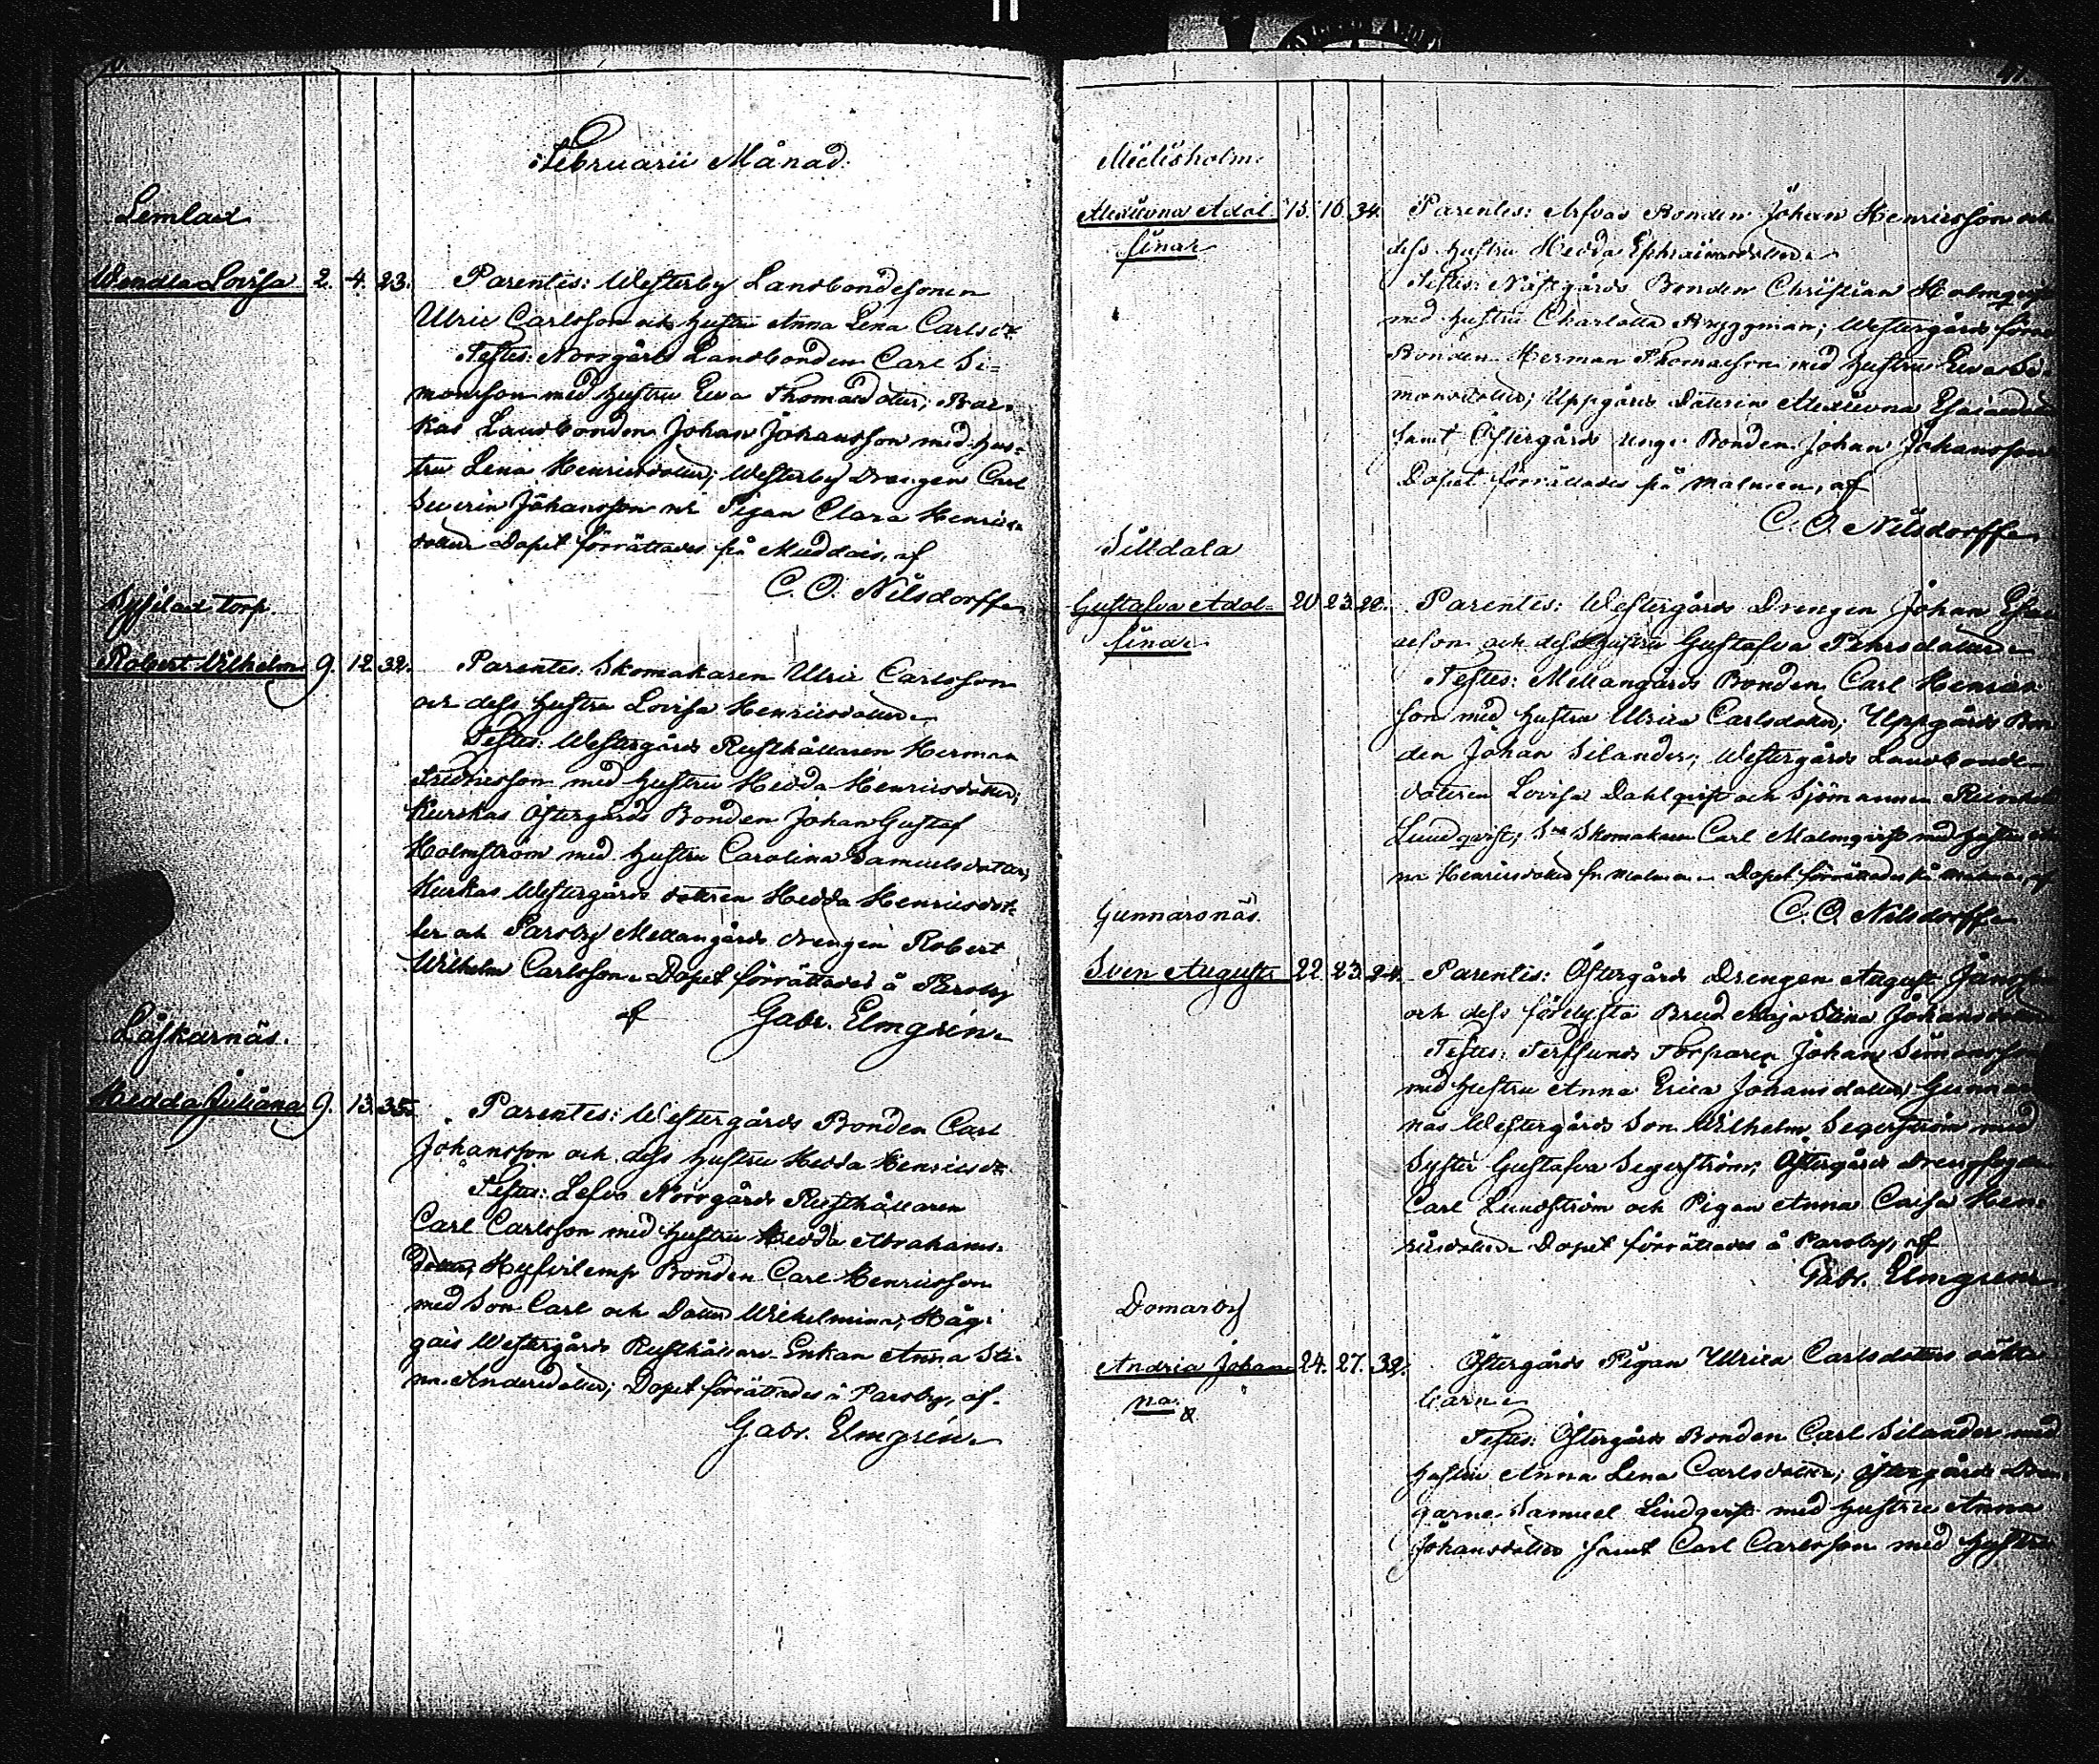 Februarii Månad.
Lemlax
Wendla Lovisa 2. 4. 23. Parentes: Westerby Landbondesonen
Ulric Carlsson och hustru Anna Lena Carlsdr
Testes: Norrgårds Landbonden Carl Si-
monsson med hustru Ewa Thomædotter;
kas Landbonden Johan Johansson med hus-
tru Lena Henricsdotter; Westerby Drengen Carl
Severin Johansson och Pigan Clara Henrics-
dotter Dopet förrättades på Muddais, af
C. O. Nilsdorff
Sysilax torp
Robert Wilhelm 9. 12. 32. Parentes: Skomakaren Ulric Carlsson
och dess hustru Lovisa Henricsdotter
Testes: Westergårds Rusthållaren Herman
Fredricsson med hustru Hedda Henricsdotter;
Kurckas Östergårds Bonden Johan Gustaf
Holmström med hustru Carolina Samuelsdotter,
Kurkas Westergårds dottren Hedda Henricsdot-
ter och Parsby Mellangårds drengen Robert
Wilhelm Carlsson. Dopet förrättades å Parsby
af Gabr. Elmgrén
Låskarnäs.
Hedda Juliana 9. 13. 35. Parentes: Westergårds Bonden Carl
Johansson och dess hustru Hedda Henricsdr
Testes: Lefvo Norrgårds Rusthållaren
Carl Carlsson med hustru Hedda Abrahams-
dotter, Hyfvilemp Bonden Carl Henricsson
med Son Carl och Dotter Wilhelmina; Häg-
gais Westergårds Rusthållare Enkan Anna Sti-
na Andersdotter; Dopet förrättades å Parsby, af
Gabr. Elmgrén
41
Mielisholm.
Alexievna Adol 15. 16. 34. Parentes: Arfvas Bonden Johan Henricsson och
finar dess hustru Hedda Ephraimsdotter
Testes: Nästgårds Bonden Christian Holmqvist
med hustru Charlotta Bryggman; Westergårds förra
Bonden Herman Thomasson med hustru Ewa Si-
monsdotter; Uppgårds Dottren Alexievna
samt Östergårds unge Bonden Johan Johansson
Dopet förrättades på Malmen, af
C. O. Nilsdorff
Silldala
Gustafva Adol- 20. 23. 20. Parentes: Westergårds Drengen Johan
fina son och dess hustru Gustafva Pehrsdotter
Testes: Mellangårds Bonden Carl Henrics-
son med hustru Ulrica Carlsdotter; Uppgårds Bon
den Johan Silander; Westergårds Landbonde-
dottren Lovisa Dahlqvist och Sjömannen
Lundqvist; Skomakaren Carl Malmqvist med hustru
na Henricsdotter fr Malmen. Dopet förrättades på Malmen, af
C. O. Nilsdorff
Gunnarsnäs.
Sven August 22. 23. 24. Parentes: Östergårds Drengen August Jansson
och dess Brud Maja Stina Johansdotter
Testes: Torparen Johan Simonsson
med hustru Anna Erica Johansdotter; Gunnars
näs Westergårds Son Wilhelm Segerström med
Syster Gustafva Segerström; Östergårds
Carl Lundström och Pigan Anna Caisa Hen-
ricsdotter. Dopet förrättades å Parsby, af
Gabr. Elmgrén
Domarby
Andria Johan- 24. 27. 32. Östergårds Pigan Ulrica Carlsdotters oäkta
na. barn.
Testes: Östergårds Bonden Carl Silander med
hustru Anna Lena Carlsdotter; Östergårds Dren-
garne Samuel Lindqvist med hustru Anna
Johansdotter samt Carl Carlsson med hustru